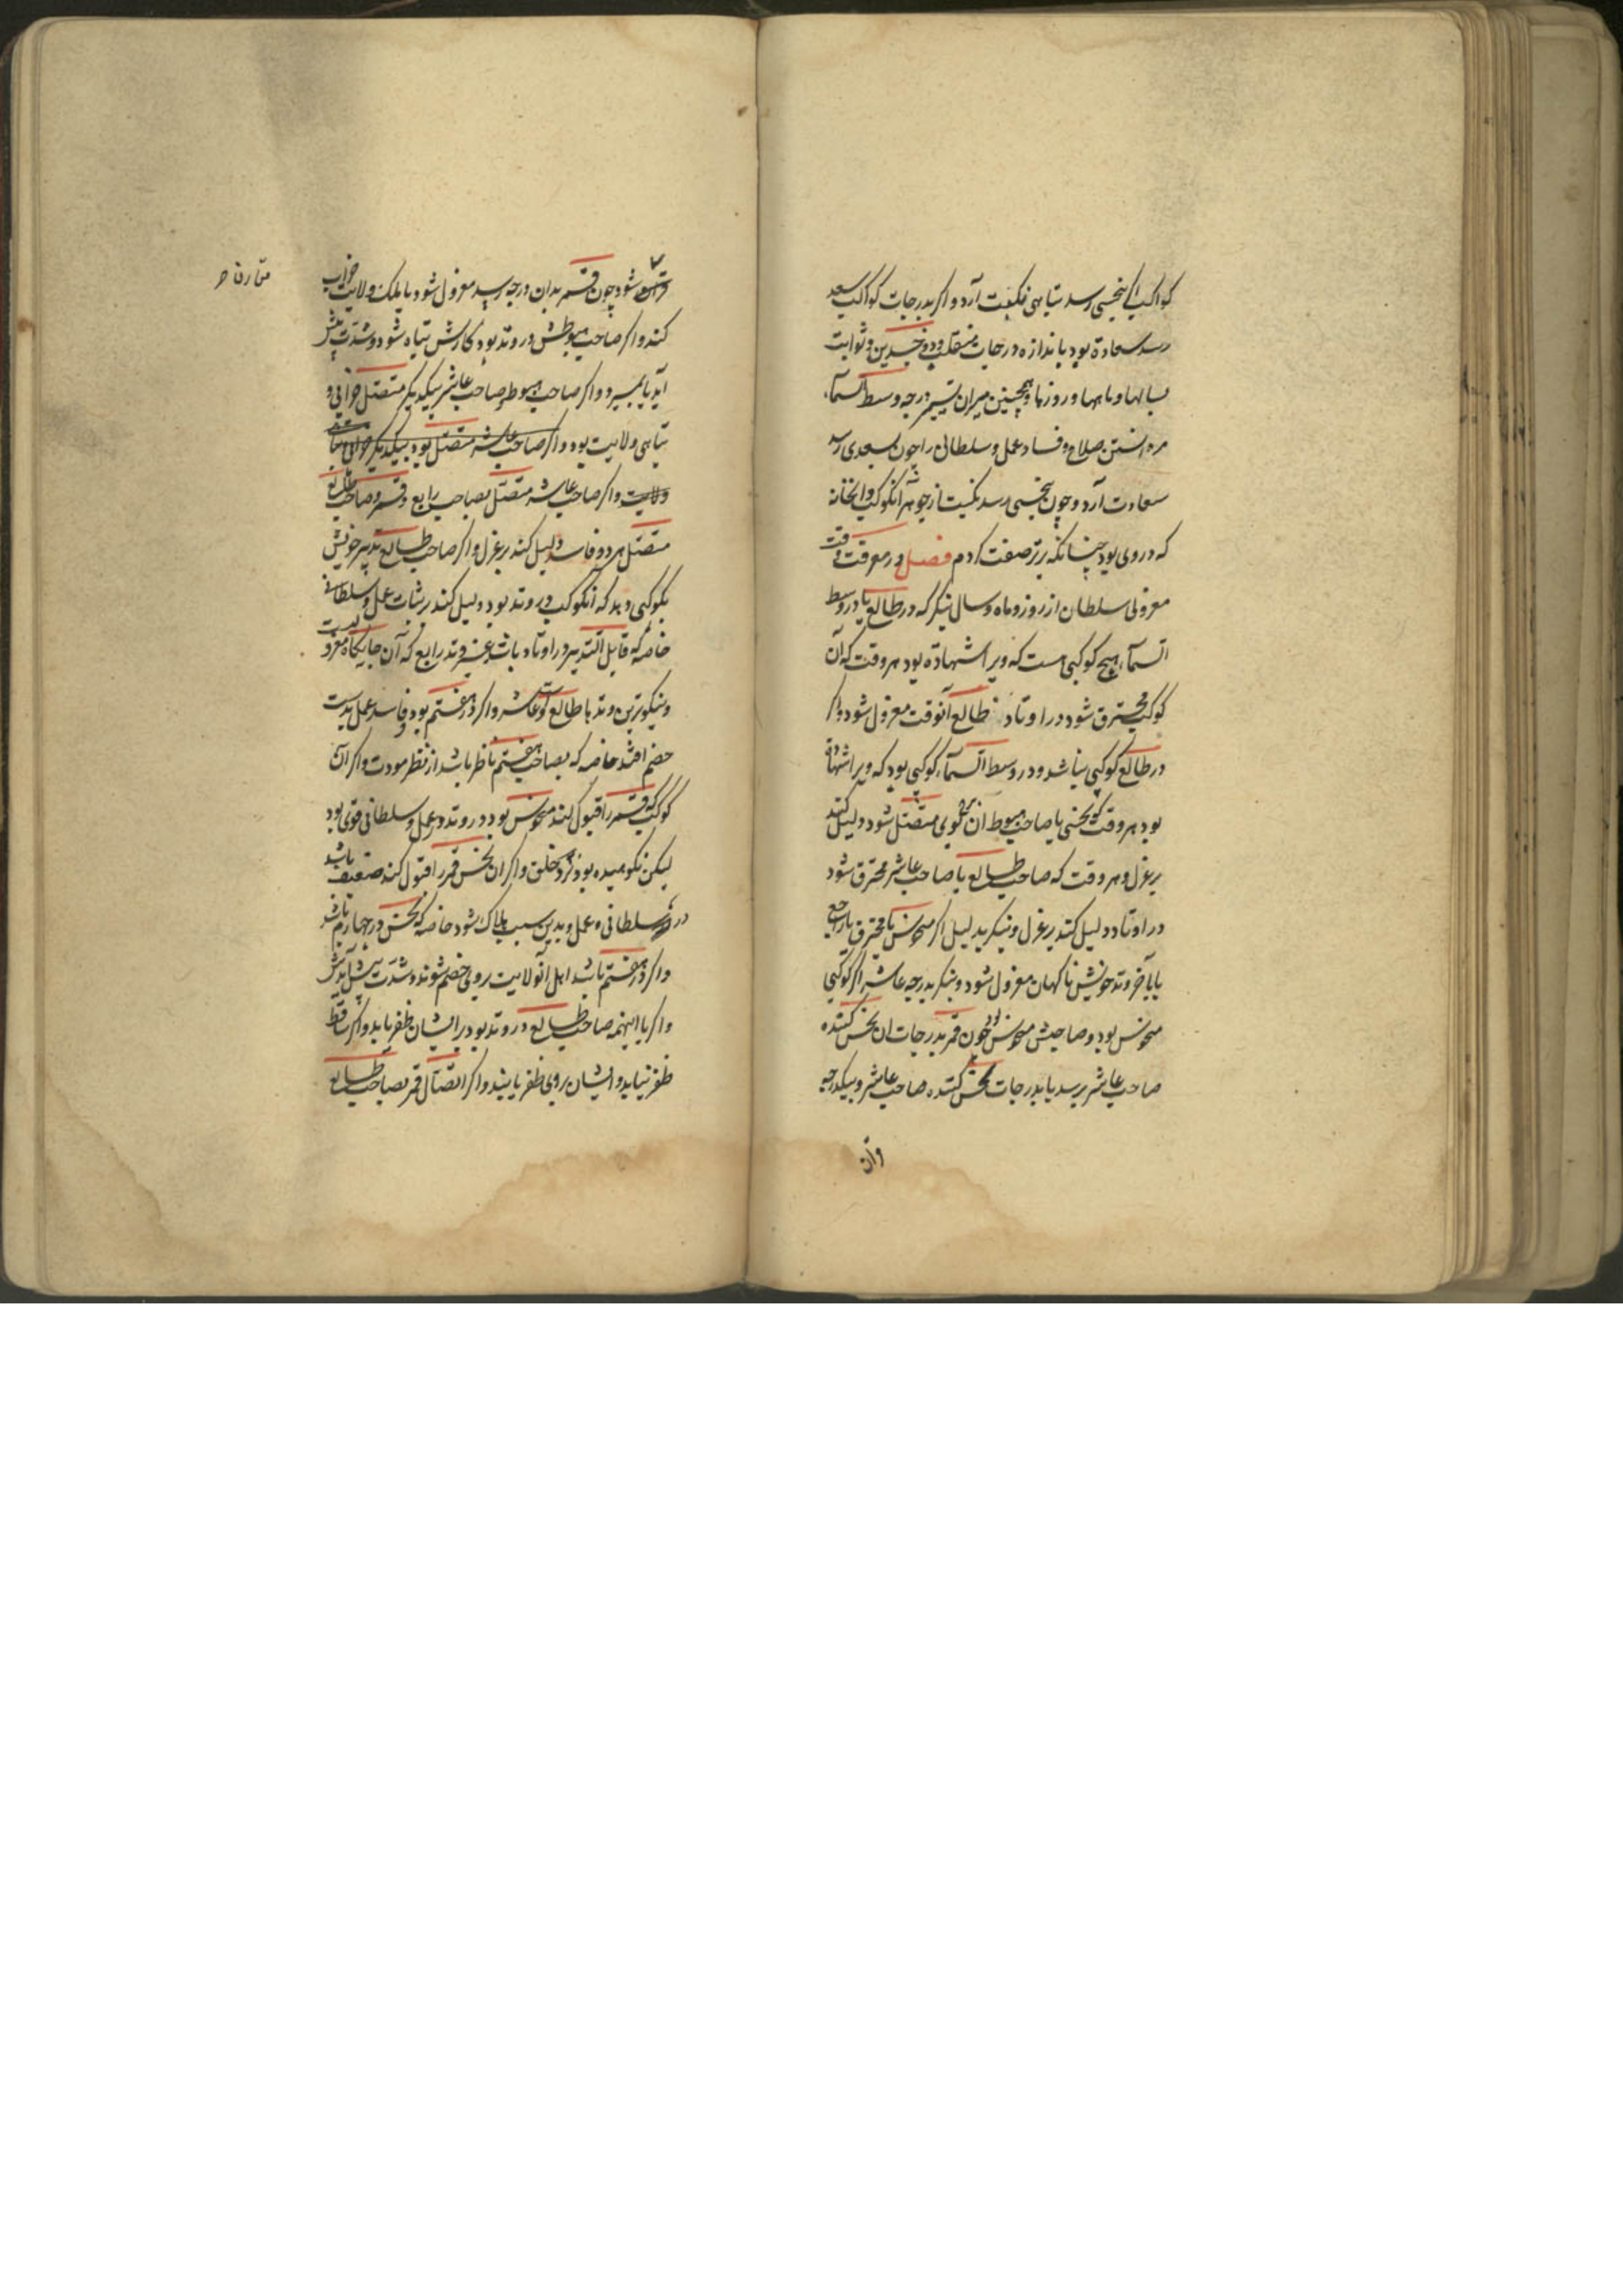 کواکب اگر بنحسی رسد تباهی و نکبت آرد و اگر بدرجات کواکب سعد
رسد سعادة بود باندازه درجات منقلب و ذو جسدین و ثوابت
بسالها و ماهها و روزها و همچنین میران تسییر درجه وسط السماء
مر دانستن صلاح و فساد عمل و سلطانی را چون بسعدی رسد
سعادت آرد و چون بنحسی رسد نکبت از جوهر آنکوکب و آنخانه
که در وی بود چنانکه برتر صفت کردم فصل در معرفت وقت
معزولی سلطان از روز و ماه و سال بنگر که در طالع یا در وسط
السماء هیچ کوکبی هست که ویرا شهادة بود هر وقت که آن
کوکب محترق شود در اوتاد طالع آنوقت معزول شود و اگر
در طالع کوکبی نباشد و در وسط السماء کوکبی بود که ویرا شهادة
بود هر وقت که نحسی یا صاحب هبوط آن بوی متصل شود دلیل کند
بر عزل و هر وقت که صاحب طالع یا صاحب عاشر محترق شود
در اوتاد دلیل کند بر عزل و بنگر بدلیل اگر منحوس یا محترق یا راجع
یا بآخر وتد خویش ناکهان معزول شود و بنگر بدرجه عاشر اگر کوکبی
منحوس بود و صاحبش منحوس بود چون قمر بدرجات آن نحس کننده
صاحب عاشر برسد یا بدرجات نحس کننده صاحب عاشر و بیکدرجه
وآن
قران شود چون قمر بدان درجه رسد معزول شود یا یلک ولایت خراب
مقارن
کند و اگر صاحب هبوطش در وتد بود کارش تباه شود و شدت پیش
آید یا بمیرد و اگر صاحب هبوط بصاحب عاشر بیکدیگر متصل خرابی و
تباهی ولایت بود و اگر صاحب عاشر متصل بود بیکدیگر خرابی
ولایت و اگر صاحب عاشر متصل بصاحب رابع و قمر و صاحب طالع
متصل هر دو فاسد دلیل کند بر عزل و اگر صاحب طالع تدبیر خویش
بکوکبی دهد که آنکوکب در وتد بود دلیل کند بر ثبات عمل و سلطانی
خاصه که قابل التدبیر در اوتاد باشد بغیر وتد رابع که آن جایگاه
و نیکوترین وتدها طالع و عاشر و اگر در هفتم بود و فاسد عمل بدست
خصم افتد خاصه که بصاحب هفتم ناظر باشد از نظر مودت و اگر آن
کوکب که قمر را قبول کند منحوس بود در وتد در عمل و سلطانی قوی بود
لیکن نکوهیده بود نزد خلق و اگر آن نحس قمر را قبول کند ضعیف باشد
در سلطانی و عمل و بدین سبب هلاک شود خاصه که نحس در چهارم باشد
و اگر در هفتم باشد اهل آنولایت بروی خصم شوند و شدت پیش آیدش
و اگر با اینهمه صاحب طالع در وتد بود بر ایشان ظفر یابد و اگر ساقط
ظفر نیابد و ایشان بروی ظفر یابند و اگر اتصال قمر بصاحب طالع